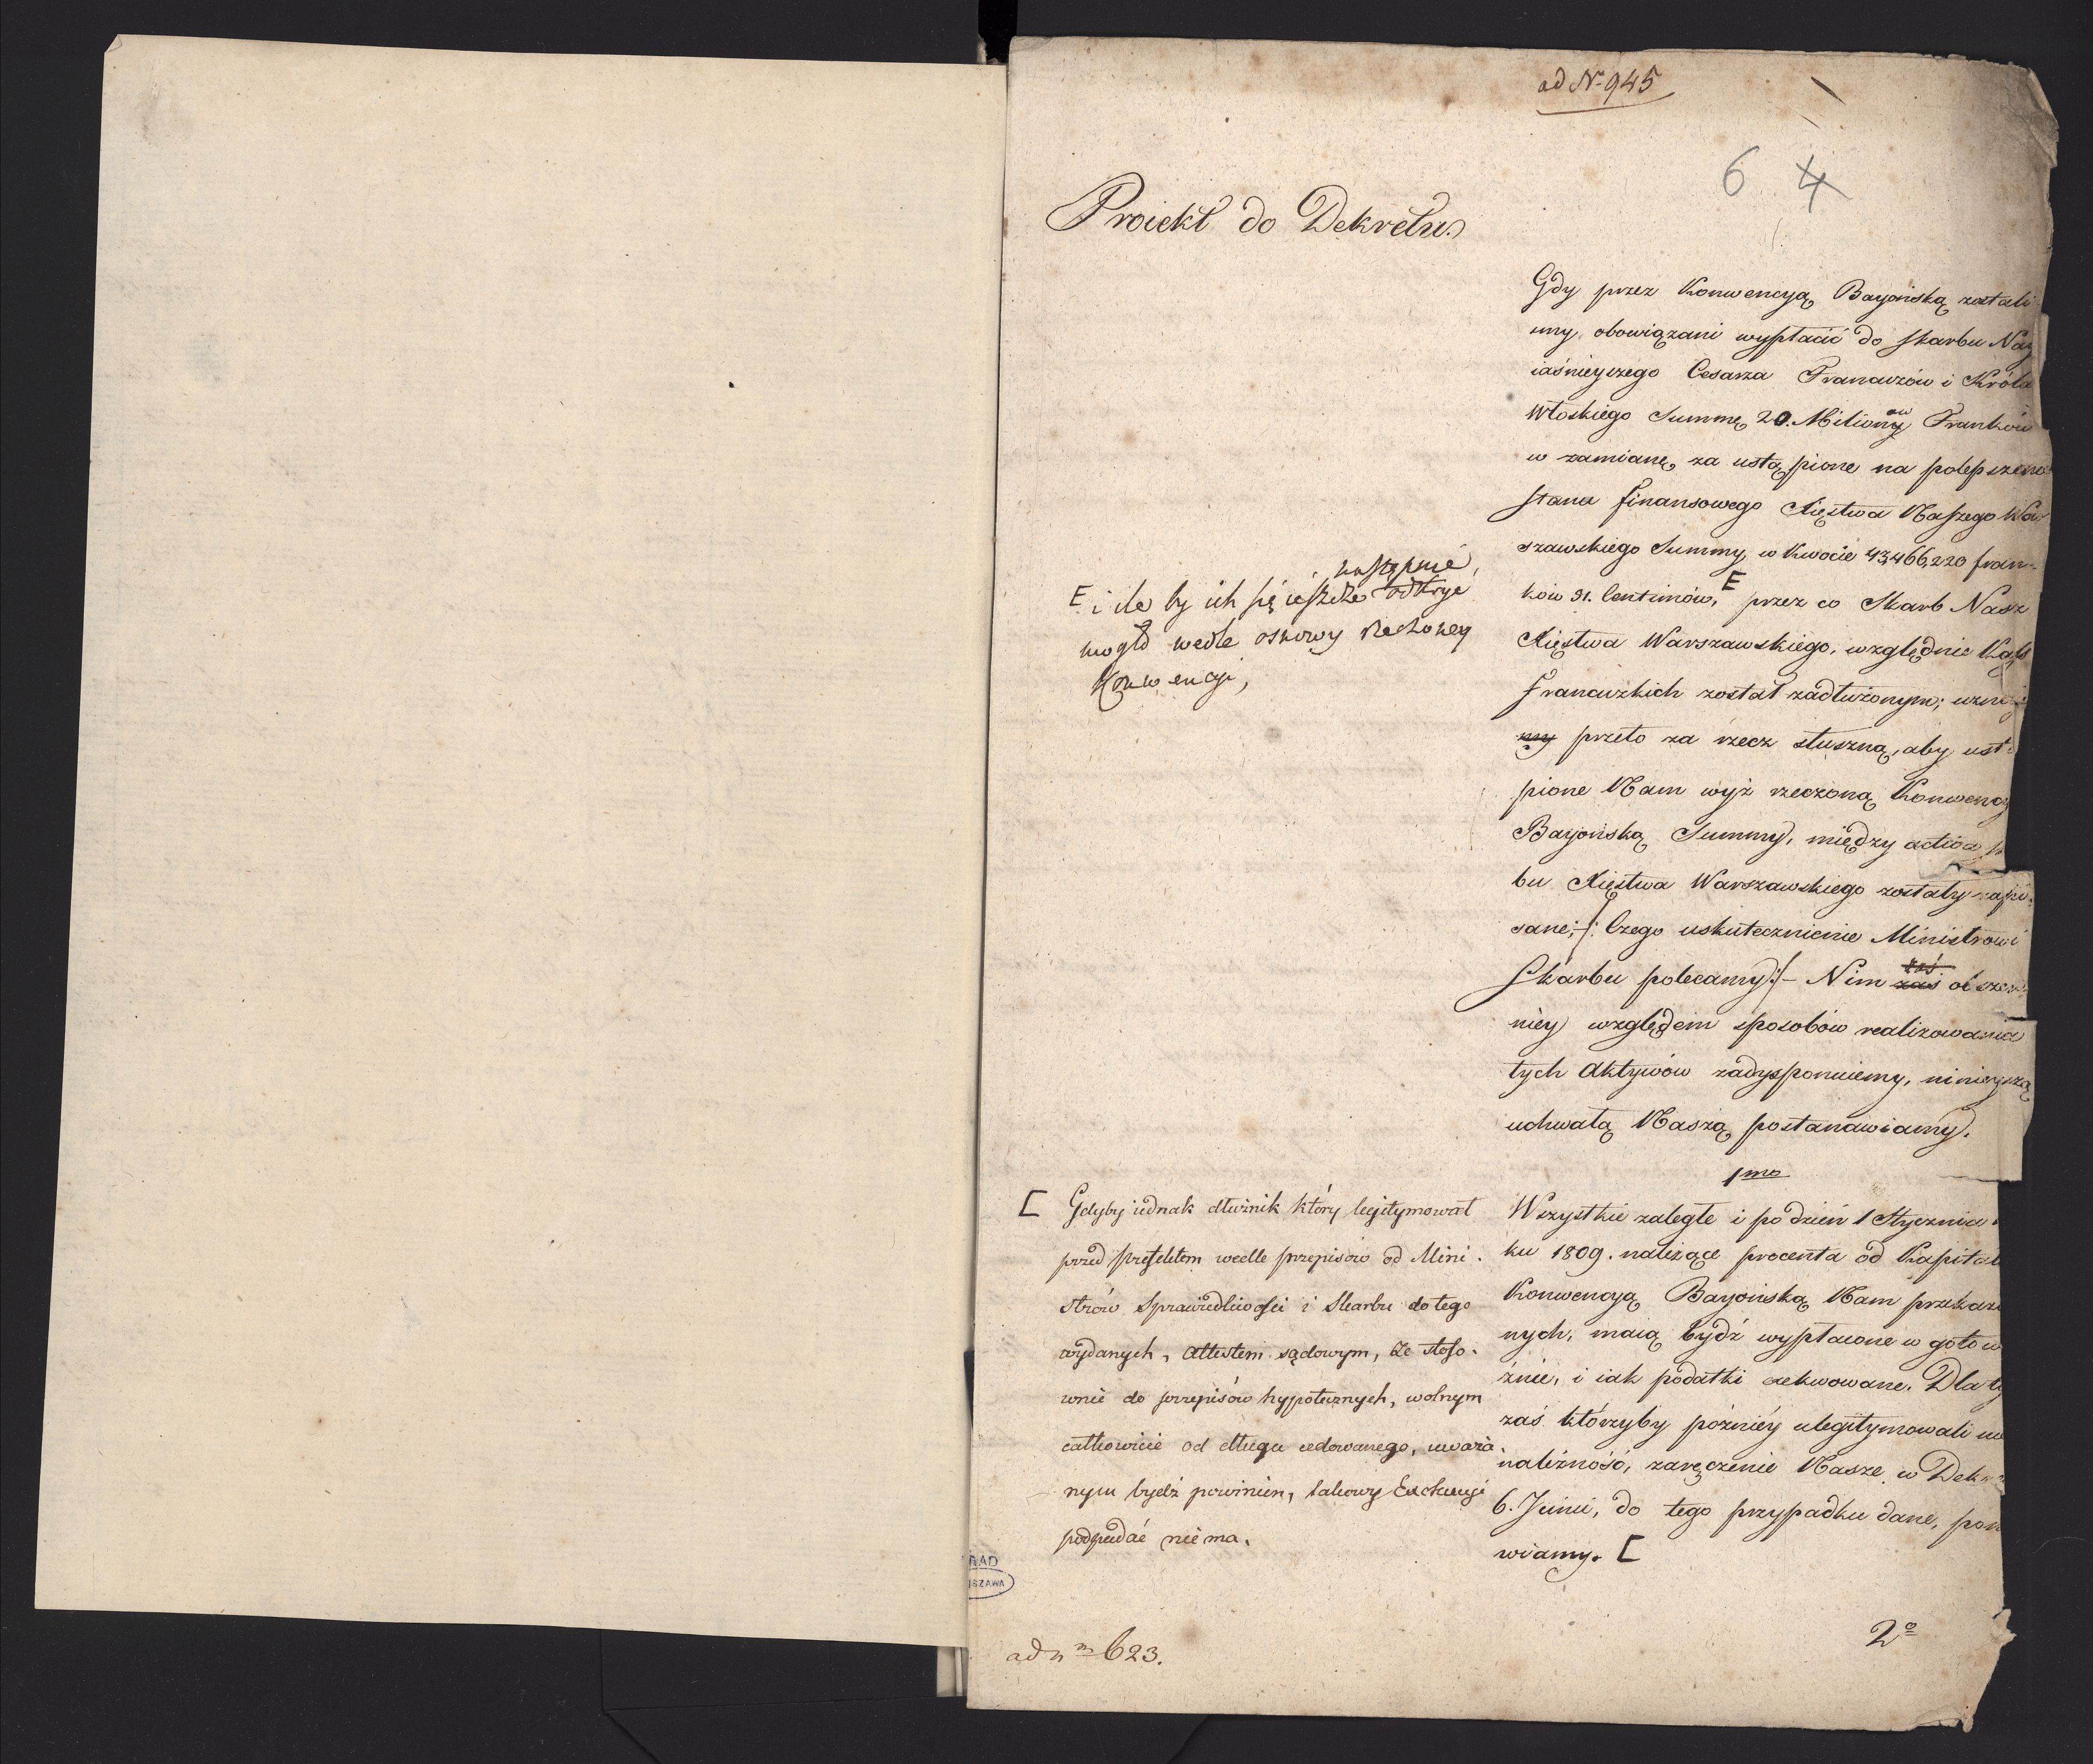 ad N. 945
6 4
Proiekt do Dekretu.
Gdy przez Konwencyą Bayońską zostali
my obowiązani wypłacić do skarbu Nay
iaśnieyszego Cesarza Francuzów i Króla
Włoskiego Summę 20. Milionów Franków
w zamianę za ustąpione na polepszenie
stanu finansowego Xięstwa Naszego War
szawskiego Summy w kwocie 43,466,220 fran-
ków 31. Centimów, E przez co Skarb Nasz
Xięstwa Warszawskiego, względnie Kass
francuzkich został zadłużonym;
my przeto za rzecz słuszną, aby ustą
pione Nam wyż rzeczoną Konwency
Bayońską Summy, między activa
bu Xięstwa Warszawskiego zostały zapi-
sane; /: Czego uskutecznienie Ministrowi
Skarbu polecamy :/ – Nim zaś obszer
niey względem sposobów realizowania
tych Aktywów zadysponuiemy, ninieyszą
uchwałą Naszą postanawiamy.
E i ile by ich się ieszcze następnie odkryć
mogło wedle osnowy rzeczoney
Konwencyi,
1mo
Wszystkie zaległe i po dzień 1 Stycznia
ku 1809. należące procenta od Kapitał
Konwencyą Bayońską Nam przekaza
nych, maią bydź wypłacone w gotow
źnie, i iak podatki exekwowane. Dla ty
zaś którzyby późniéy ulegitymowali
należność, zaręczenie Nasze w Dek
6. Junii, do tego przypadku dane, pon
wiamy. [
[ Gdyby iednak dłużnik który legitymował
przed Prefektem wedle przepisów od Mini-
strów Sprawiedliwości i Skarbu do tego
wydanych, attestem sądowym, że stoso-
wnie do przepisów hypotecznych, wolnym
całkowicie od długu cedowanego, uważa-
nym bydź powinien, takowy Exekucyi
podpadać nie ma.
2o
ad nm 623.
AGAD
WARSZAWA